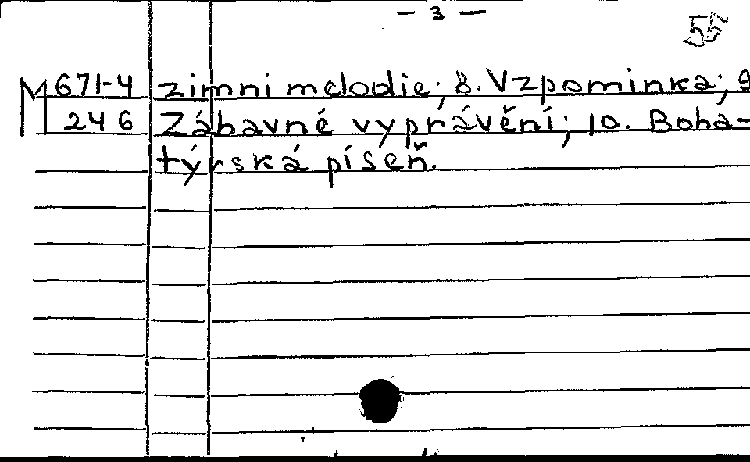 - 3 -
55
M 671-4 zimni melodie; 8. Vzpominka; 9
246 Zábavné vyprávění; 10. Boha-
týrská píseň.